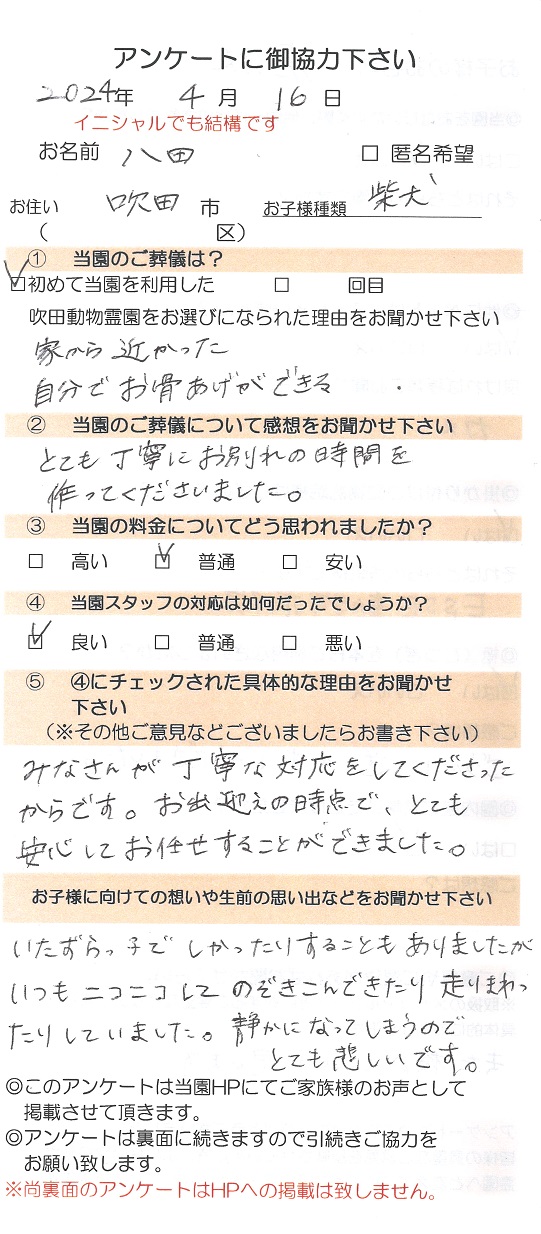 アンケートに御協力下さい
2024年 4月 16日
イニシャルでも結構です
お名前 八田 □ 匿名希望
お住い 吹田 市 お子様種類 柴犬
( 区)
① 当園のご葬儀は？
☑初めて当園を利用した □ 回目
吹田動物霊園をお選びになられた理由をお聞かせ下さい
家から近かった
自分でお骨あげができる
② 当園のご葬儀について感想をお聞かせ下さい
とても丁寧にお別れの時間を
作ってくださいました。
③ 当園の料金についてどう思われましたか？
□ 高い ☑ 普通 □ 安い
④ 当園スタッフの対応は如何だったでしょうか？
☑ 良い □ 普通 □ 悪い
⑤ ④にチェックされた具体的な理由をお聞かせ
下さい
（※その他ご意見などございましたらお書き下さい）
みなさんが丁寧な対応をしてくださった
からです。お出迎えの時点で、とても
安心してお任せすることができました。
お子様に向けての想いや生前の思い出などをお聞かせ下さい
いたずらっ子でしかったりすることもありましたが
いつもニコニコしてのぞきこんできたり走りまわっ
たりしていました。静かになってしまうので
とても悲しいです。
◎このアンケートは当園HPにてご家族様のお声として
掲載させて頂きます。
◎アンケートは裏面に続きますので引続きご協力を
お願い致します。
※尚裏面のアンケートはHPへの掲載は致しません。